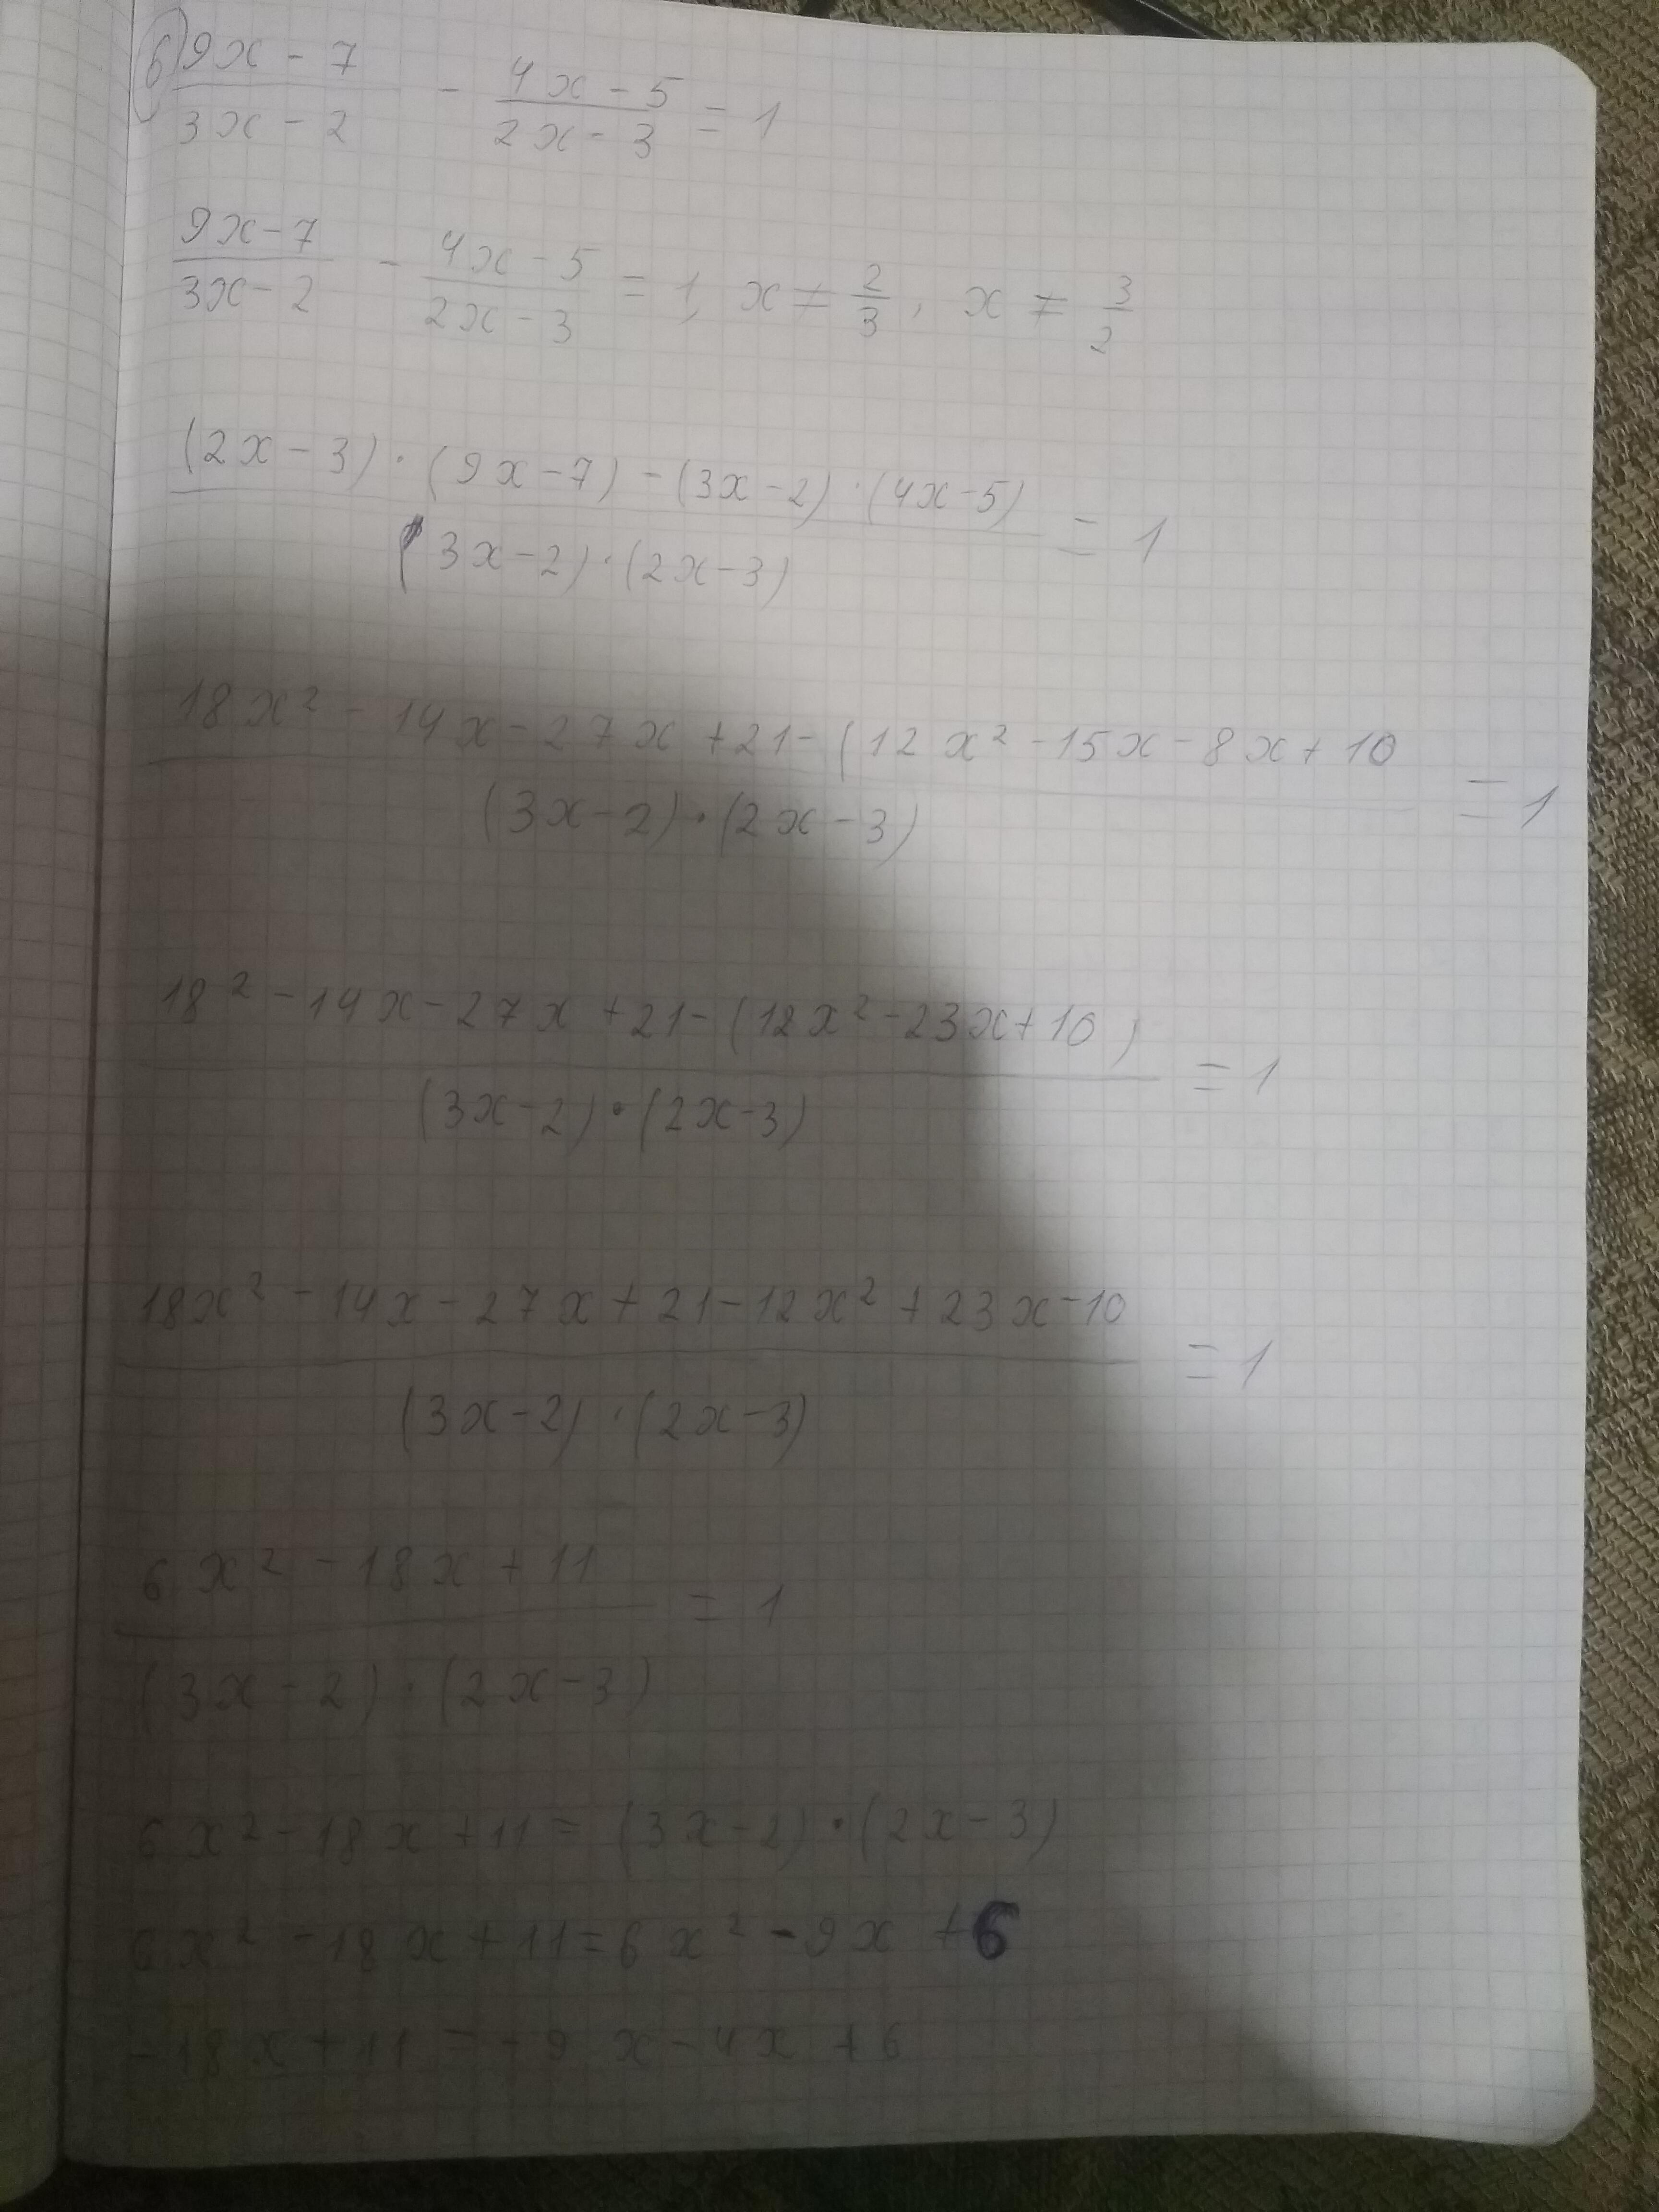 б) (9x - 7)/(3x - 2) - (4x - 5)/(2x - 3) = 1
(9x - 7)/(3x - 2) - (4x - 5)/(2x - 3) = 1, x ≠ 2/3, x ≠ 3/2
((2x - 3) · (9x - 7) - (3x - 2) · (4x - 5))/((3x - 2) · (2x - 3)) = 1
(18x² - 14x - 27x + 21 - (12x² - 15x - 8x + 10)/((3x - 2) · (2x - 3)) = 1
(18² - 14x - 27x + 21 - (12x² - 23x + 10))/((3x - 2) · (2x - 3)) = 1
(18x² - 14x - 27x + 21 - 12x² + 23x - 10)/((3x - 2) · (2x - 3)) = 1
(6x² - 18x + 11)/((3x - 2) · (2x - 3)) = 1
6x² - 18x + 11 = (3x - 2) · (2x - 3)
6x² - 18x + 11 = 6x² - 9x + 6
-18x + 11 = -9x - 4x + 6